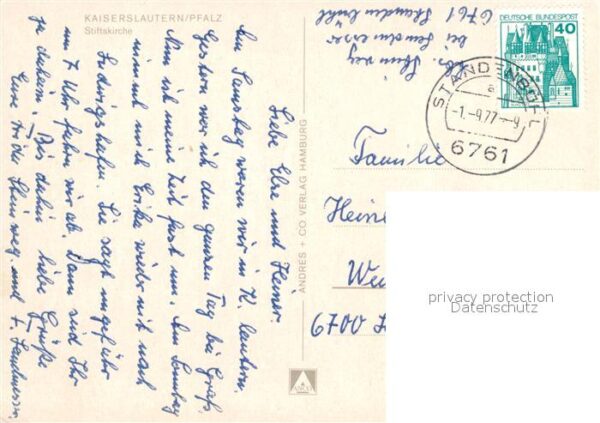 KAISERSLAUTERN/PFALZ
Stiftskirche
Liebe Else und Heiner.
Am Samstag waren wir in K. lautern.
Gestern war ich den ganzen Tag bei
Nun ist meine Zeit fast um. Am Sonntag
nimmt mich Erika wieder mit nach
Ludwigshafen. Sie sagt ungefähr
um 7 Uhr fahren wir ab. Dann sind Ihr
ja daheim. Bis dahin liebe Grüße
Eure und
ANDRES + CO VERLAG HAMBURG
ANCO
bei
6761
DEUTSCHE BUNDESPOST
40
STANDENBÜHL
a
-1.-9.77-9
6761
Familie
Hein
We
6700
privacy protection
Datenschutz